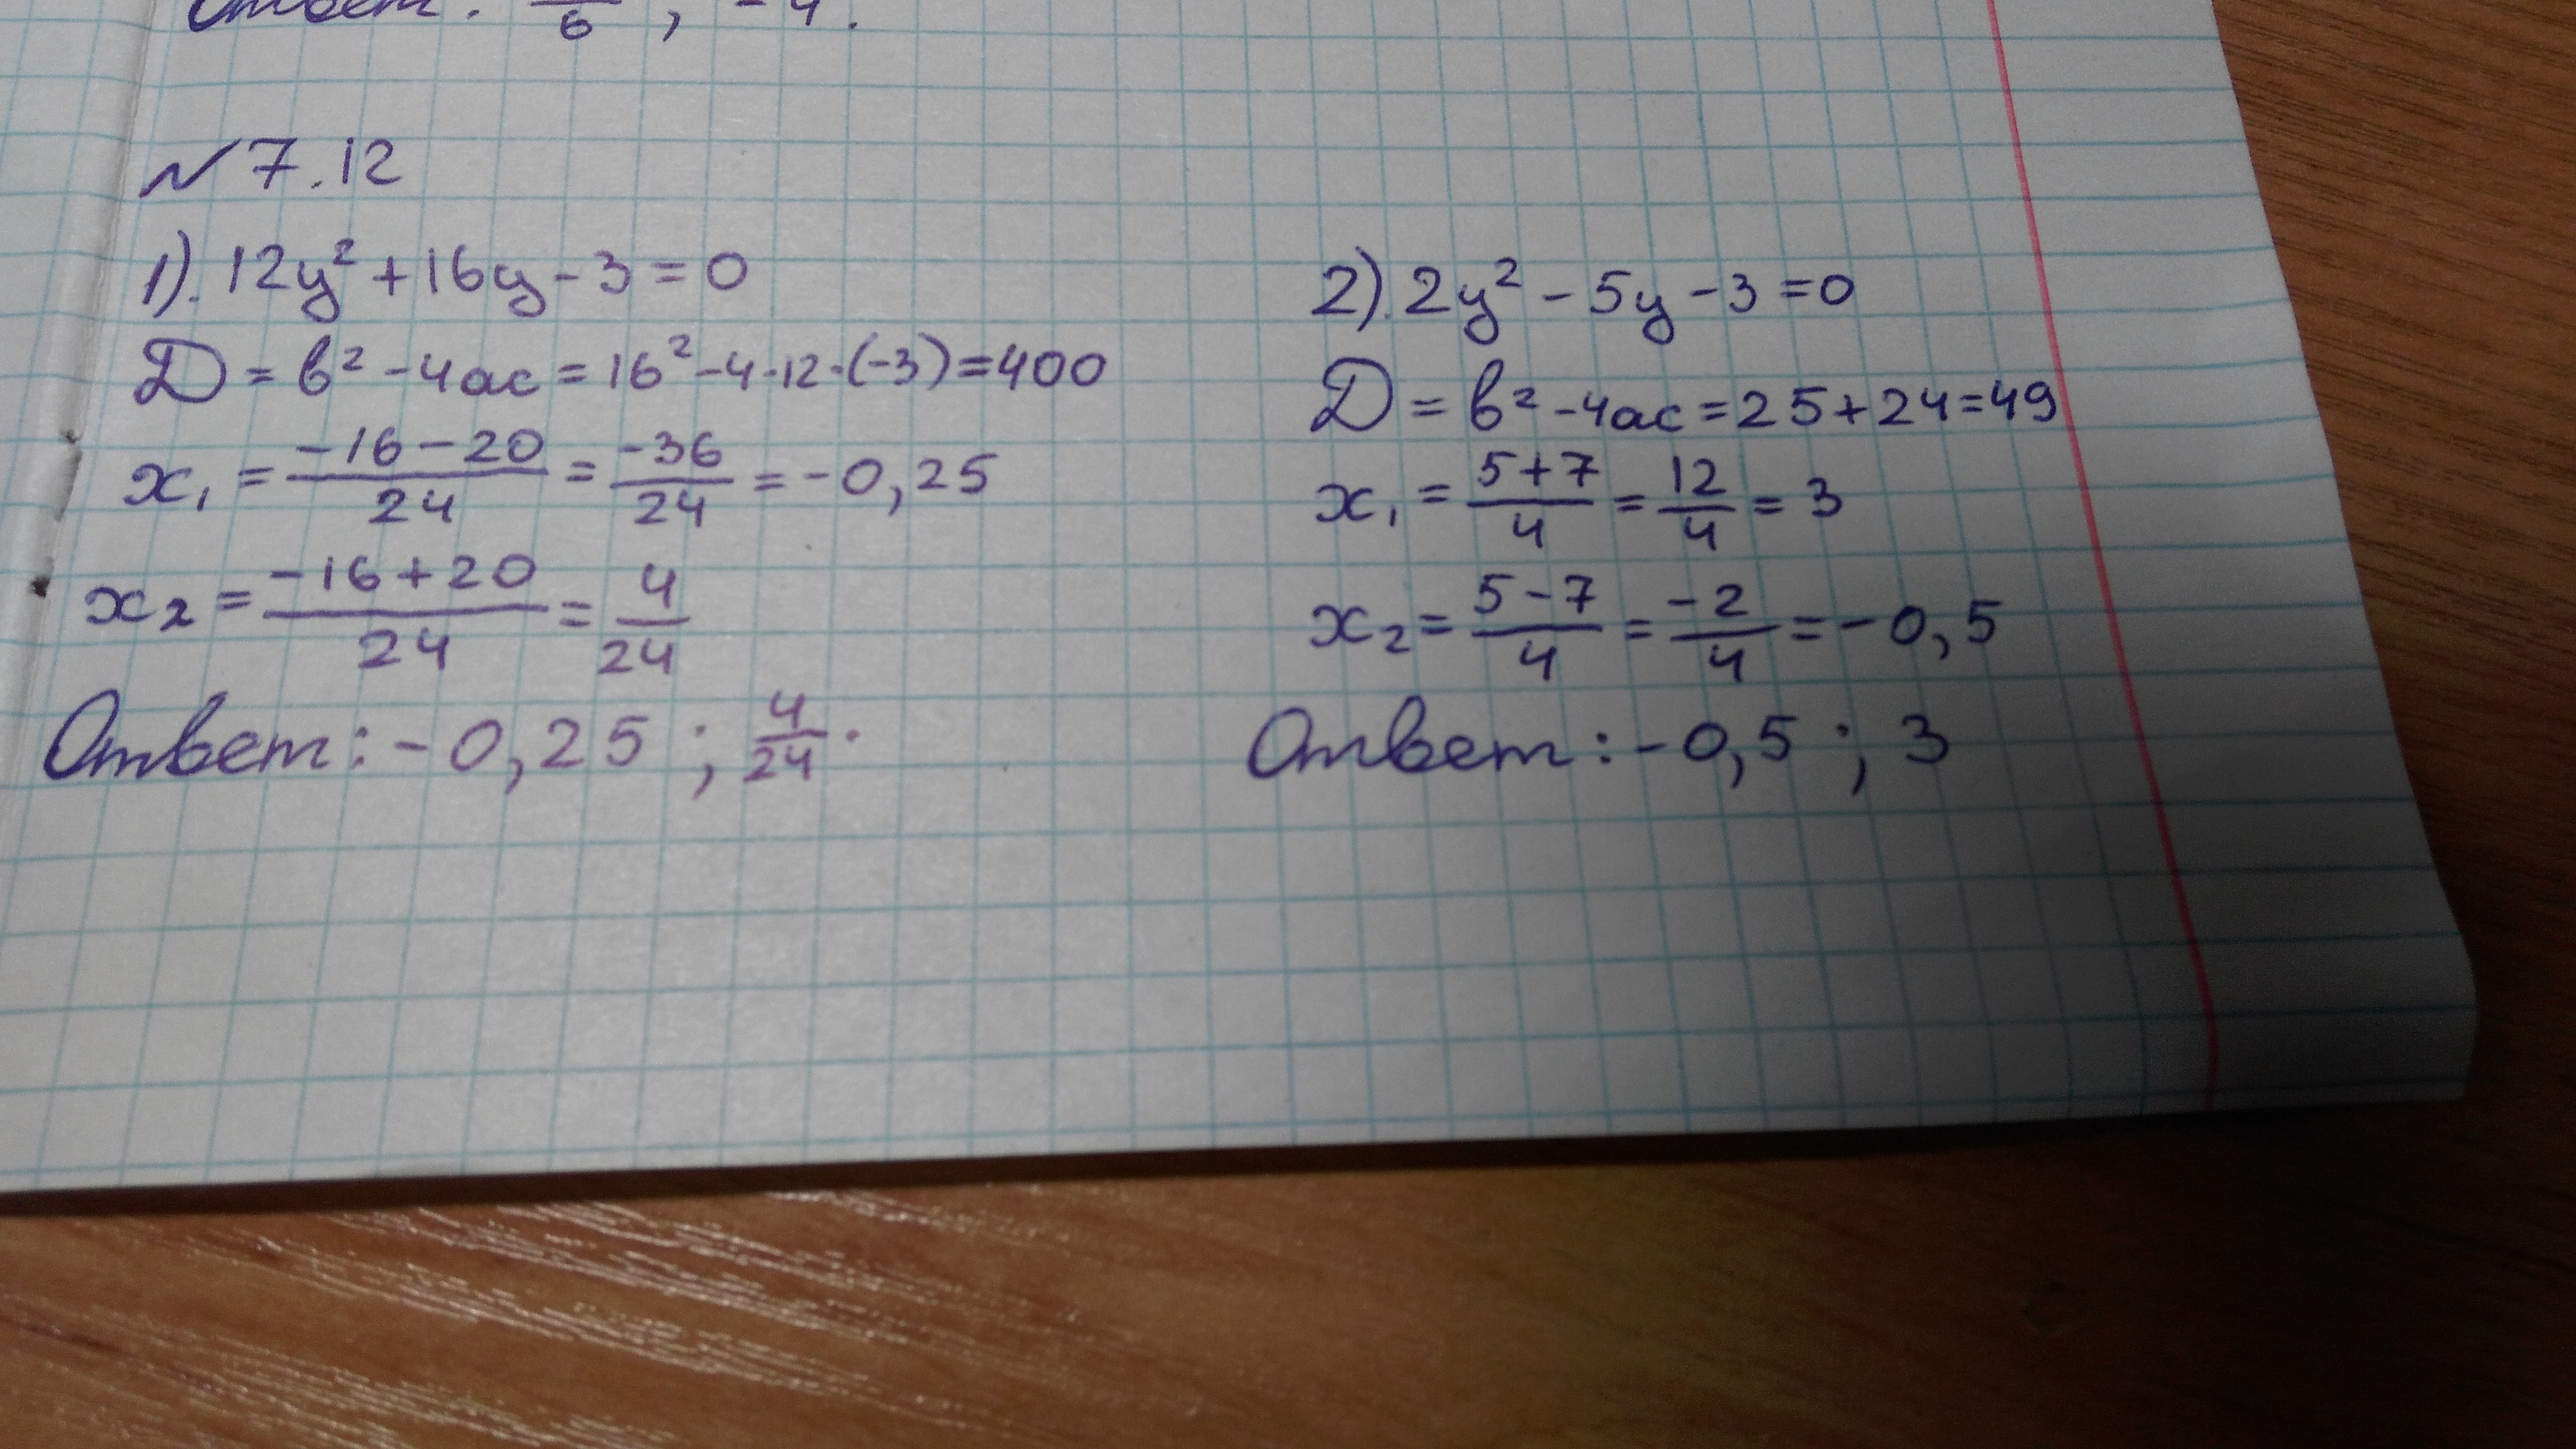 Ответ: 6 ; -4.
№ 7.12
1). 12y² + 16y - 3 = 0
D = b² - 4ac = 16² - 4·12·(-3) = 400
x₁ = (-16 - 20)/24 = -36/24 = -0,25
x₂ = (-16 + 20)/24 = 4/24
Ответ: -0,25 ; 4/24.
2). 2y² - 5y - 3 = 0
D = b² - 4ac = 25 + 24 = 49
x₁ = (5 + 7)/4 = 12/4 = 3
x₂ = (5 - 7)/4 = -2/4 = -0,5
Ответ: -0,5 ; 3